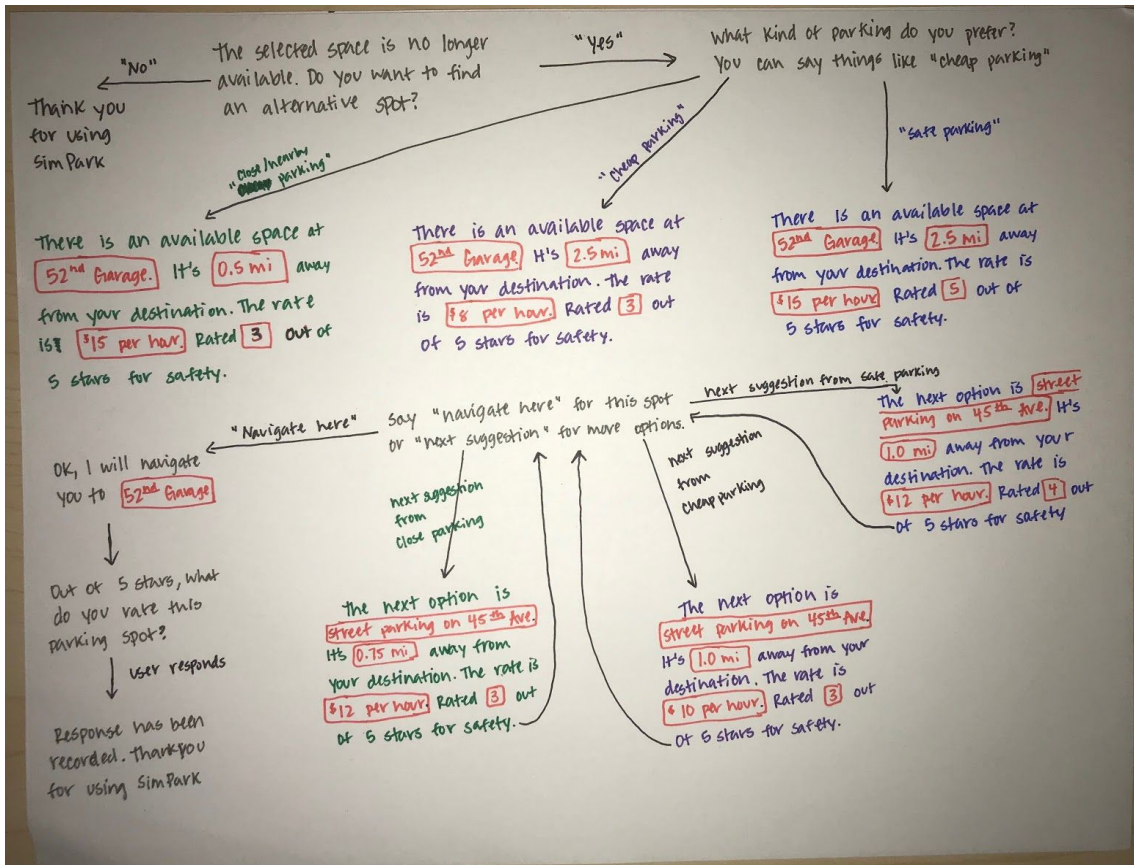 The selected space is no longer
available. Do you want to find
an alternative spot?
"No"
Thank you
for using
SimPark
"Yes"
What kind of parking do you prefer?
You can say things like "cheap parking"
close/nearby
" parking"
"cheap parking"
"safe parking"
There is an available space at
52nd Garage. It's 0.5 mi away
from your destination. The rate
is $15 per hour. Rated 3 out of
5 stars for safety.
There is an available space at
52nd Garage It's 2.5 mi away
from your destination. The rate
is $8 per hour. Rated 3 out
of 5 stars for safety.
There is an available space at
52nd Garage It's 2.5 mi away
from your destination. The rate is
$15 per hour Rated 5 out of
5 stars for safety.
Say "navigate here" for this spot
or "next suggestion" for more options.
"Navigate here"
OK, I will navigate
you to 52nd Garage
Out of 5 stars, what
do you rate this
parking spot?
user responds
Response has been
recorded. Thankyou
for using SimPark
next suggestion
from
close parking
The next option is
street parking on 45th Ave.
It's 0.75 mi away from
your destination. The rate is
$12 per hour. Rated 3 out
of 5 stars for safety.
next suggestion
from
cheap parking
The next option is
street parking on 45th Ave.
It's 1.0 mi away from your
destination. The rate is
$10 per hour. Rated 3 out
of 5 stars for safety.
next suggestion from safe parking
The next option is street
parking on 45th Ave. It's
1.0 mi away from your
destination. The rate is
$12 per hour. Rated 4 out
of 5 stars for safety